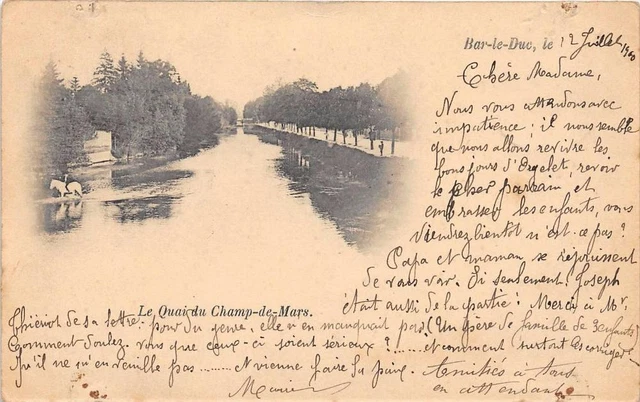 Bar-le-Duc, le 12 Juillet 1900
Chère Madame,
Nous vous attendons avec
impatience ; il nous semble
que nous allons revivre les
bons jours d'Orgelet, revoir
le cher parrain et
embrasser les enfants, vous
viendrez bientôt n'est-ce pas ?
Papa et maman se réjouissent
de vous voir. Si seulement Joseph
était aussi de la partie ! Merci à Mr
Le Quai du Champ-de-Mars.
Thiériot de sa lettre. pour du genre, elle n'en manquait pas, (Un père de famille de 3 enfants)
Comment voulez-vous que ceux-ci soient sérieux ? ...... et comment surtout les corriger
Qu'il ne m'en veuille pas ........ et vienne faire la paix. Amitiés à tous
en attendant
Marie